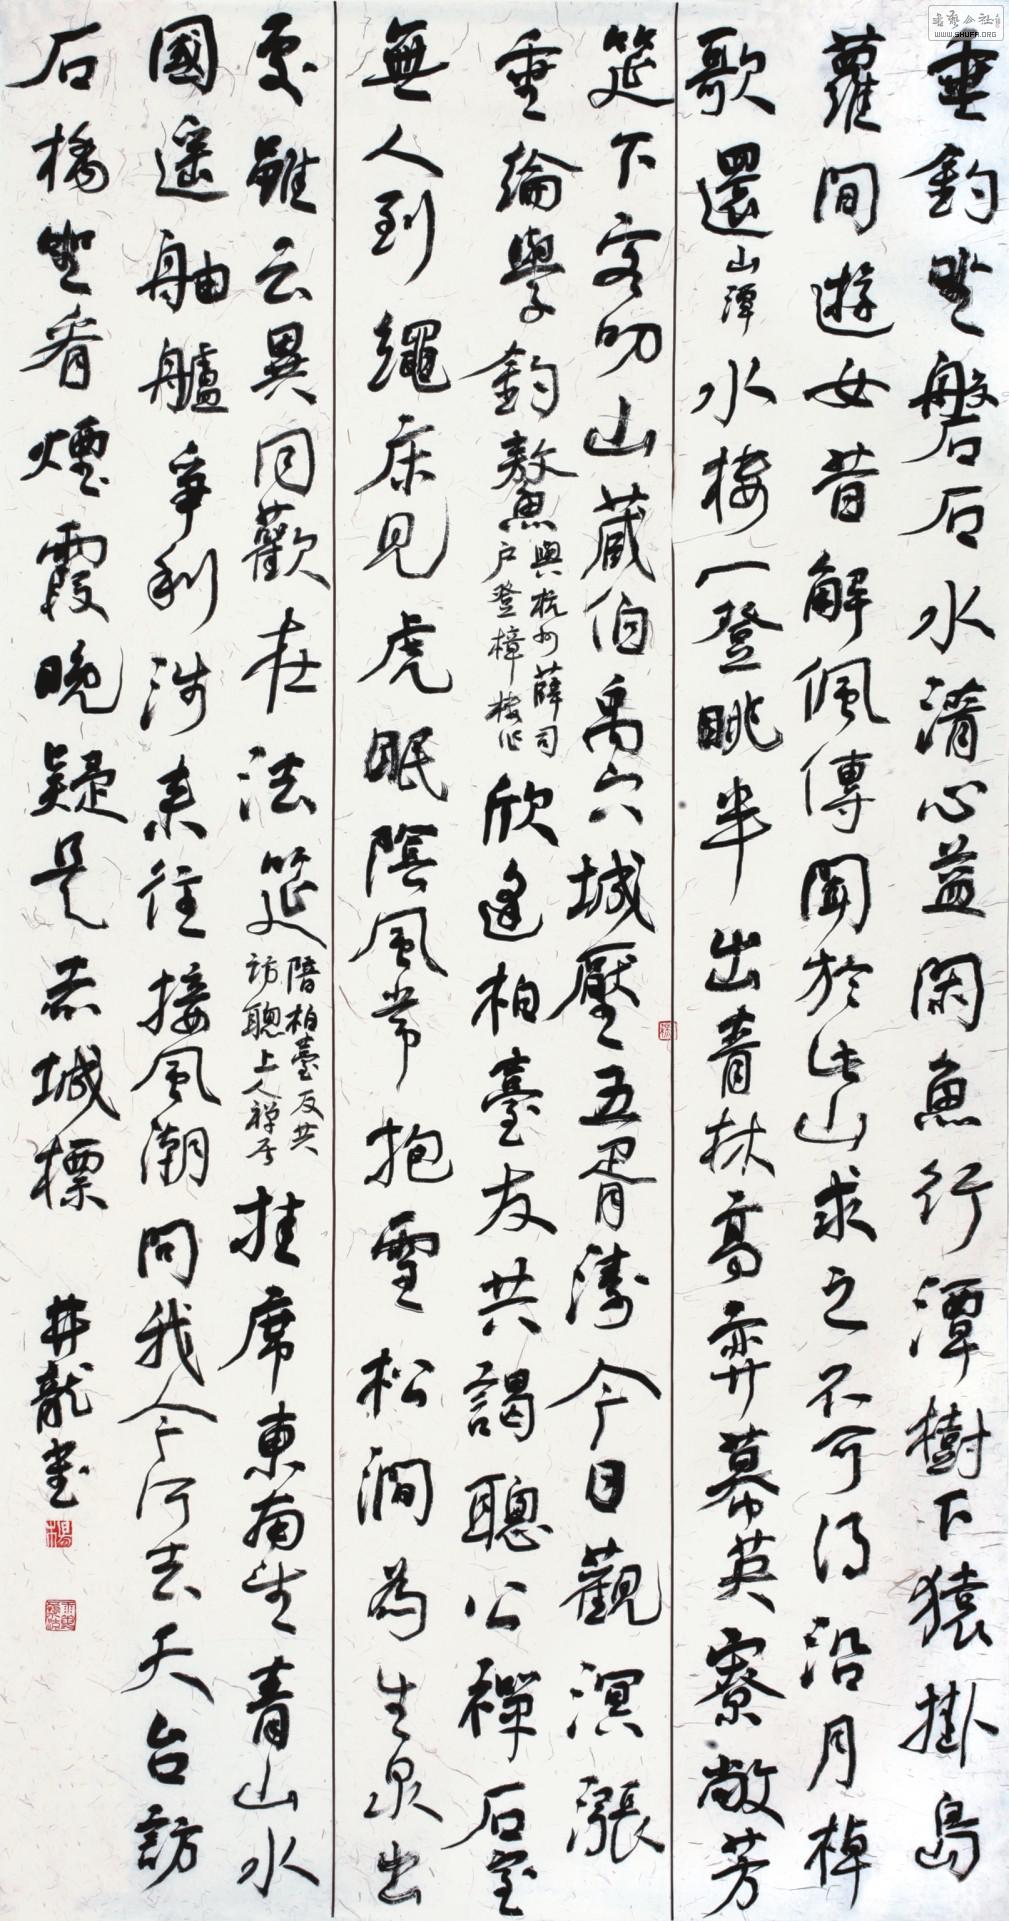 垂釣坐磐石水清心益閑魚行潭樹下猿掛島
蘿間遊女昔解佩傳聞於此山求之不可得沿月棹
歌還山潭水樓一登眺半出青林高帟幕英寮敞芳
筵下客叨山藏伯禹穴城壓五胥濤今日觀溟漲
垂綸學釣鰲與杭州薛司戶登樟樓作欣逢柏臺友共謁聰公禪石室
無人到繩床見虎眠陰風常抱雪松澗為生泉出
處雖云異同歡在法筵陪柏臺友共訪聰上人禪居挂席東南望青山水
國遙舳艫爭利涉來往接風潮問我今何去天台訪
石橋坐看煙霞晚疑是赤城標
井龍書
書藝公社
WWW.SHUFA.ORG